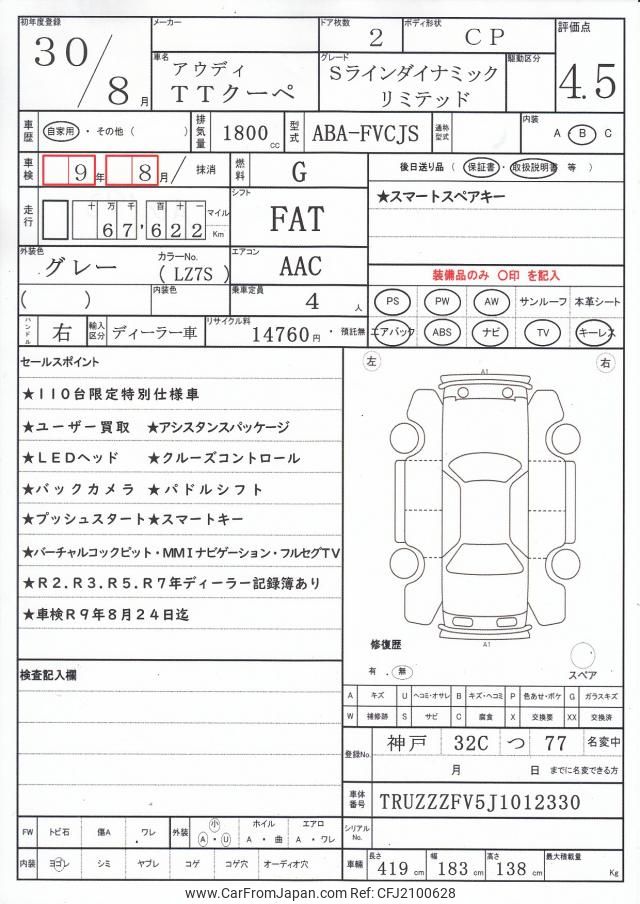 初年度登録
30/8月
メーカー
ドア枚数
2
ボディ形状
CP
評価点
4.5
車名
アウディ
TTクーペ
グレード
Sラインダイナミック
リミテッド
駆動区分
車歴
自家用・その他( )
排気量
1800cc
型式
ABA-FVCJS
通称型式
内装
A・B C
車検
9年 8月/ 抹消
燃料
G
後日送り品( 保証書・取扱説明書 等 )
走行
十万千百十一
67,622
マイル
Km
シフト
FAT
★スマートスペアキー
外装色
グレー
カラーNo.
(LZ7S)
エアコン
AAC
装備品のみ 〇印 を記入
( )
内装色
乗車定員
4人
PS PW AW サンルーフ 本革シート
ハンドル
右
輸入区分
ディーラー車
リサイクル料
14760円・預託無
エアバック ABS ナビ TV キーレス
セールスポイント
★110台限定特別仕様車
★ユーザー買取 ★アシスタンスパッケージ
★LEDヘッド ★クルーズコントロール
★バックカメラ ★パドルシフト
★プッシュスタート★スマートキー
★バーチャルコックピット・MMIナビゲーション・フルセグTV
★R2.R3.R5.R7年ディーラー記録簿あり
★車検R9年8月24日迄
左
右
A1
A1
修復歴
有.無
スペア
検査記入欄
A キズ U ヘコミ・オサレ B キズ・ヘコミ P 色あせ・ボケ G ガラスキズ
W 補修跡 S サビ C 腐食 X 交換要 XX 交換済
登録No.
神戸 32C つ 77 名変中
月 日 までに名変できる方
車体番号
TRUZZZFV5J1012330
シリアルNo.
FW トビ石 傷A ワレ 外装 小 A・U ホイル A・曲 エアロ A・ワレ
内装 ヨゴレ シミ ヤブレ コゲ コゲ穴 オーディオ穴
車輛
長さ
419cm
幅
183cm
高さ
138cm
最大積載量
Kg
www.CarFromJapan.com Ref: CFJ2100628